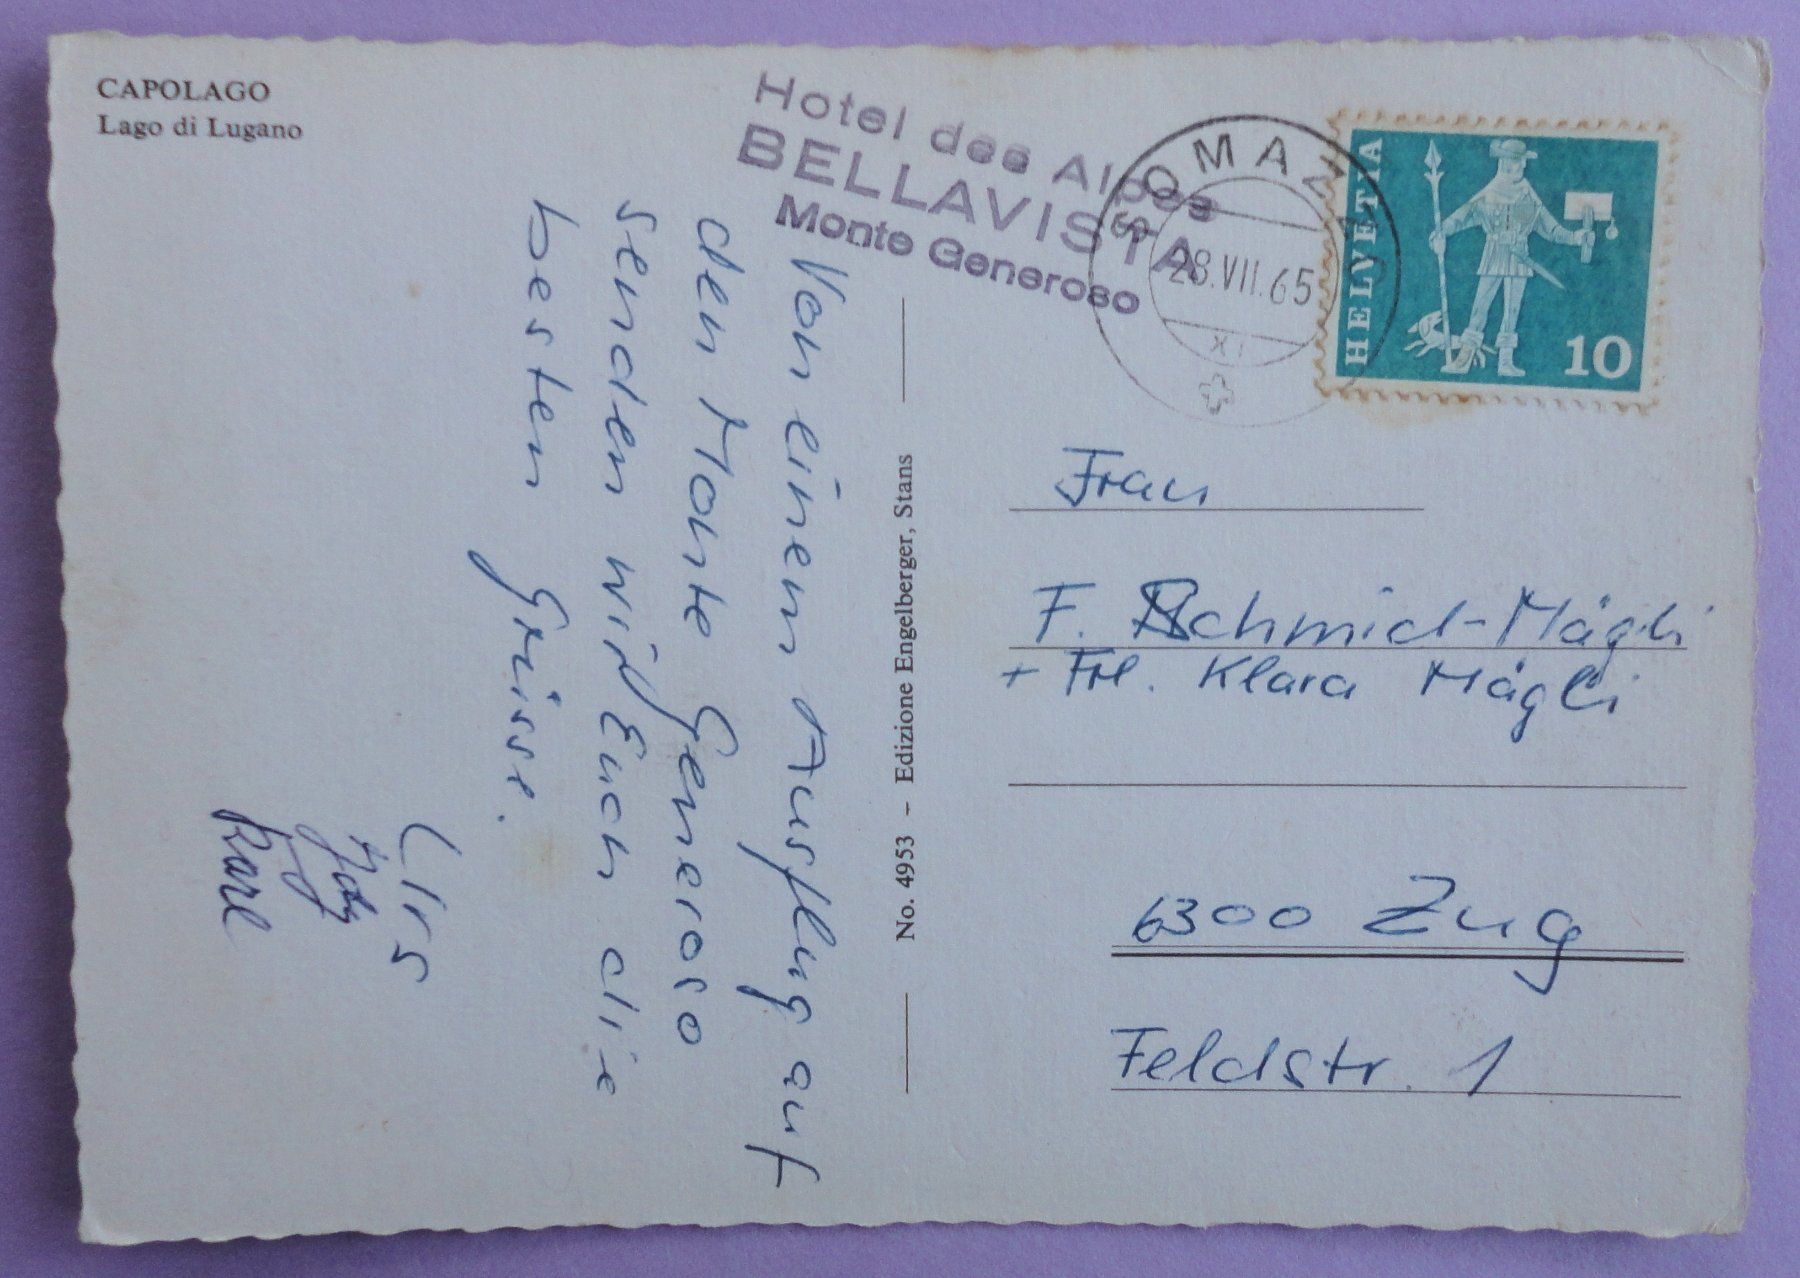 CAPOLAGO
Lago di Lugano
Hotel des Alpes
BELLAVISTA
Monte Generoso
SOMAZZO
28.VII.65
XI
HELVETIA
10
Von einem Ausflug auf
den Monte Generoso
senden wir Euch die
besten Grüsse.
Urs
Karl
No. 4953 – Edizione Engelberger, Stans
Frau
F. Schmid-Mägli
+ Frl. Klara Mägli
6300 Zug
Feldstr. 1